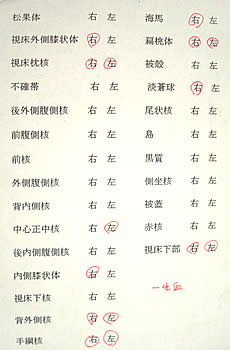 松果体 右 左
視床外側膝状体 右 左
視床枕核 右 左
不確帯 右 左
後外側腹側核 右 左
前腹側核 右 左
前核 右 左
外側腹側核 右 左
背内側核 右 左
中心正中核 右 左
後内側腹側核 右 左
内側膝状体 右 左
視床下核 右 左
背外側核 右 左
手綱核 右 左
海馬 右 左
扁桃体 右 左
被殻 右 左
淡蒼球 右 左
尾状核 右 左
島 右 左
黒質 右 左
側坐核 右 左
被蓋 右 左
赤核 右 左
視床下部 右 左